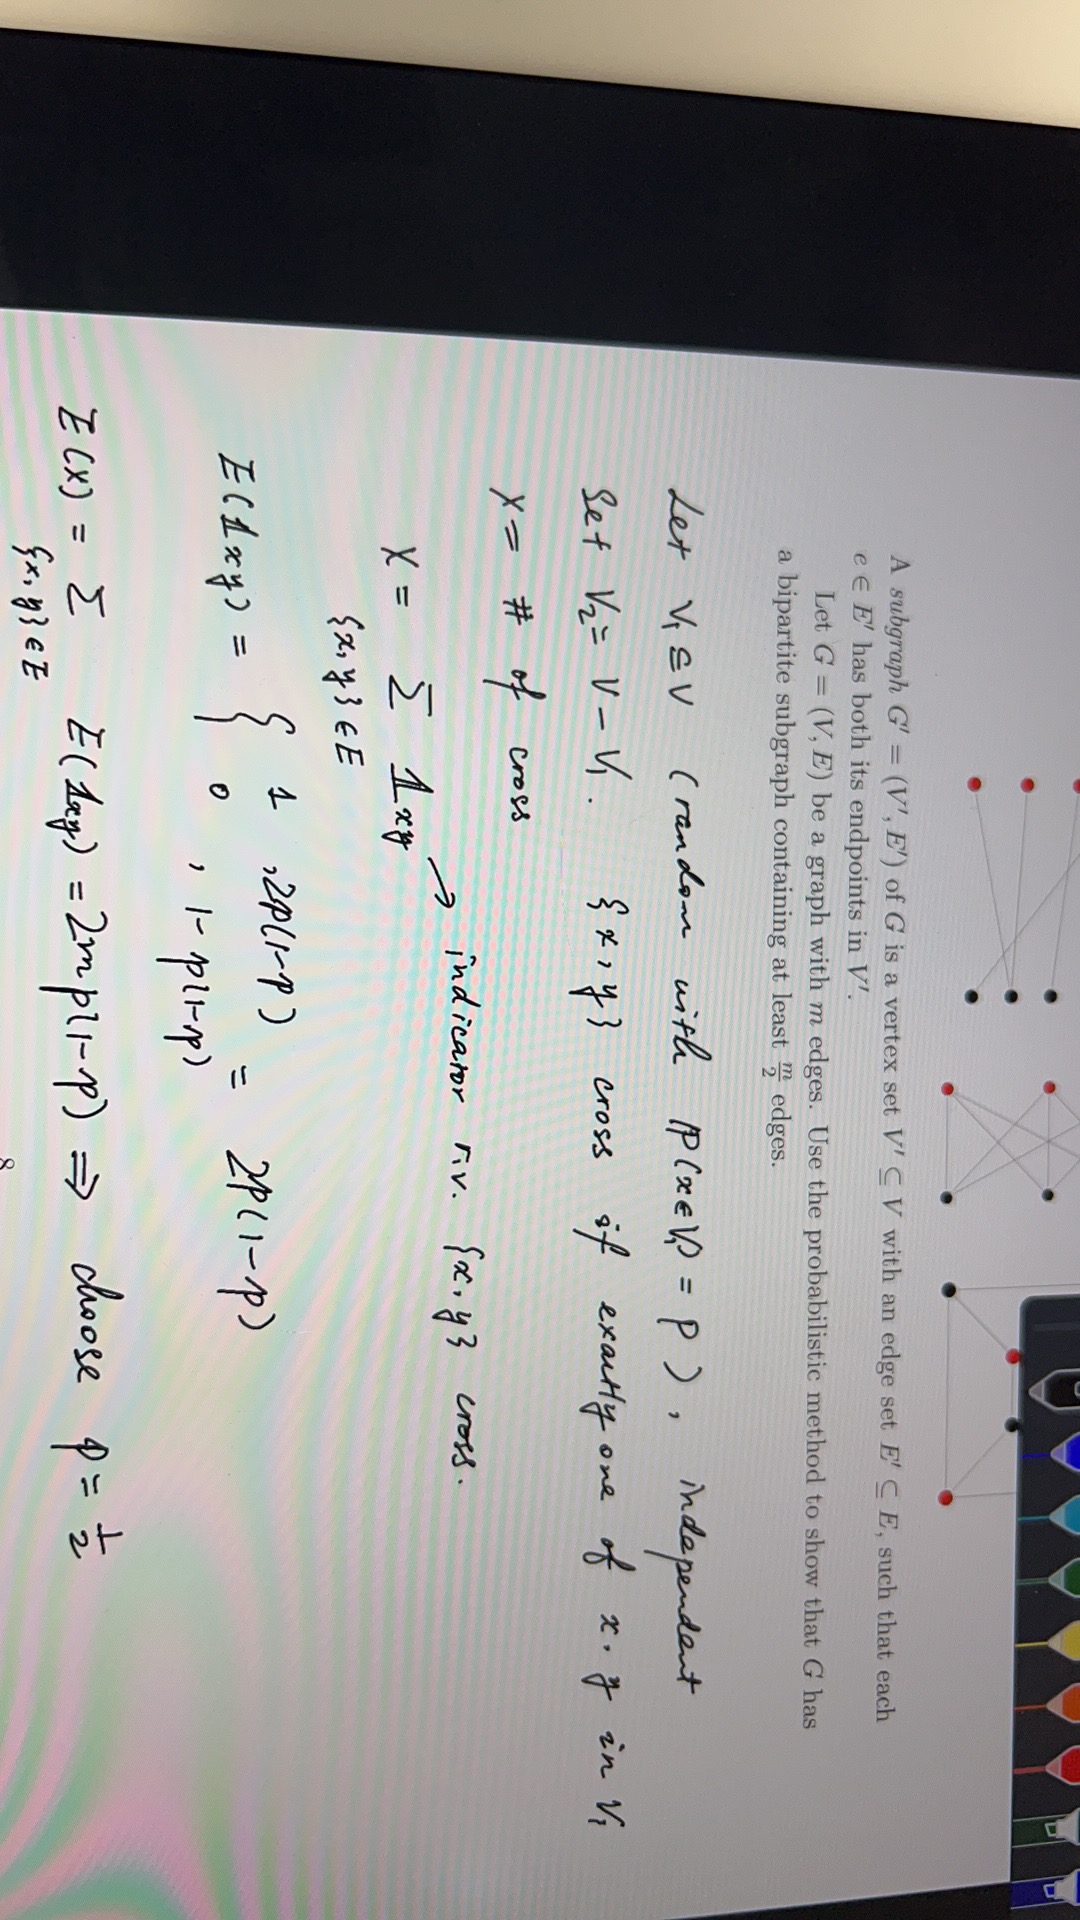 A subgraph G′ = (V′, E′) of G is a vertex set V′ ⊆ V with an edge set E′ ⊆ E, such that each
e ∈ E′ has both its endpoints in V′.
Let G = (V, E) be a graph with m edges. Use the probabilistic method to show that G has
a bipartite subgraph containing at least m/2 edges.
Let V₁ ⊆ V (random with ℙ(x∈V₁) = p), independent
Set V₂ = V − V₁. {x, y} cross if exactly one of x, y in V₁
X = # of cross
X = Σ 𝟙xy → indicator r.v. {x, y} cross.
{x, y} ∈ E
E(𝟙xy) = { 1 , 2p(1−p) = 2p(1−p)
0 , 1−p(1−p)
E(X) = Σ E(𝟙xy) = 2mp(1−p) ⇒ choose p = 1/2
{x, y} ∈ E
8